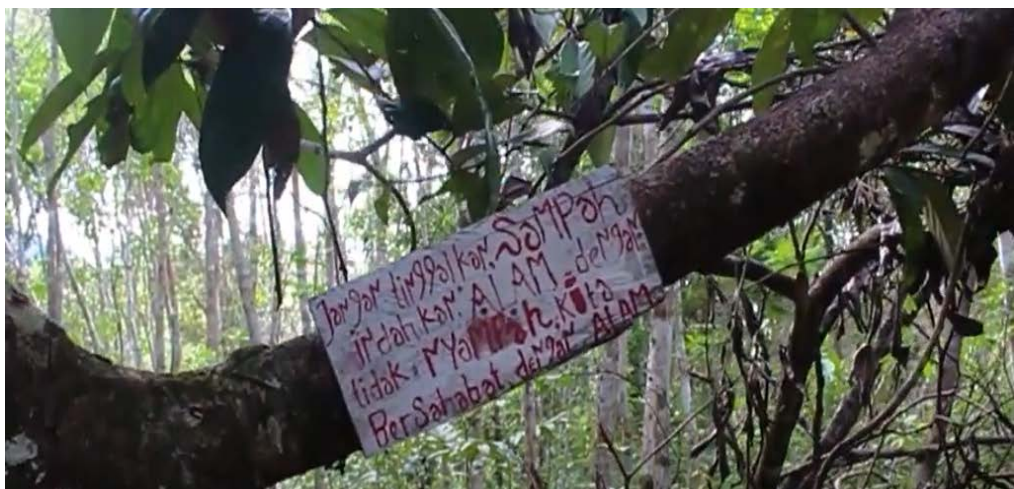 Jangan tinggalkan SaMPah
indahkan ALAM dengan
tidak NYaMPah, Kita
BerSahabat dengan ALAM